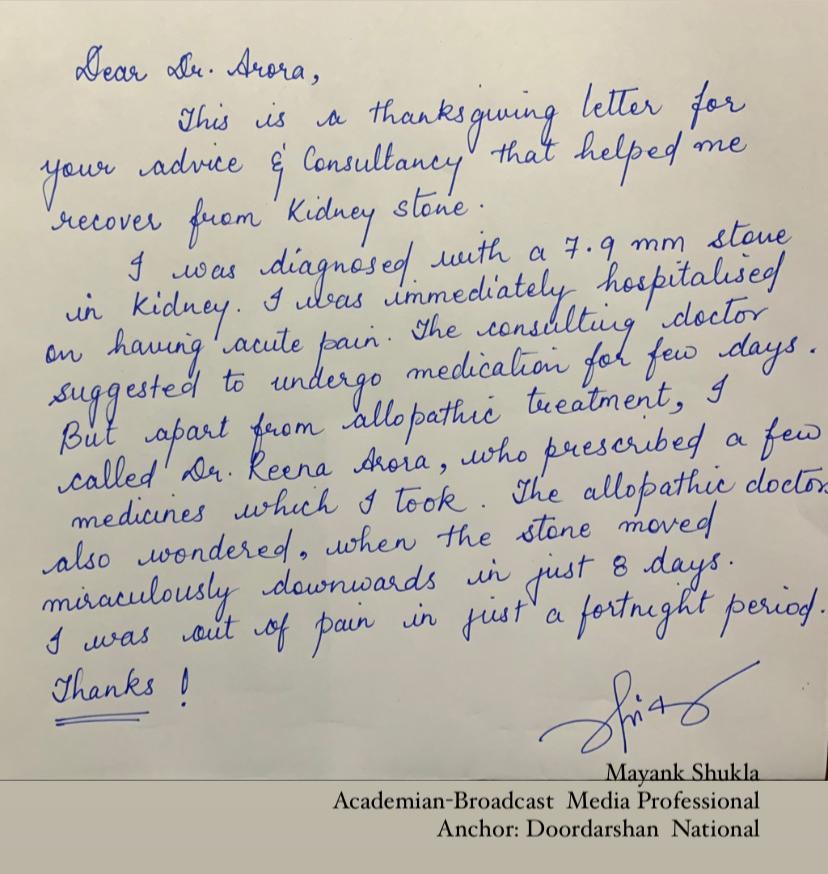 Dear Dr. Arora,
This is a thanksgiving letter for
your advice & Consultancy that helped me
recover from Kidney stone.
I was diagnosed with a 7.9 mm stone
in kidney. I was immediately hospitalised
on having acute pain. The consulting doctor
suggested to undergo medication for few days.
But apart from allopathic treatment, I
called Dr. Reena Arora, who prescribed a few
medicines which I took. The allopathic doctor
also wondered, when the stone moved
miraculously downwards in just 8 days.
I was out of pain in just a fortnight period.
Thanks !
Mayank Shukla
Academian-Broadcast Media Professional
Anchor: Doordarshan National